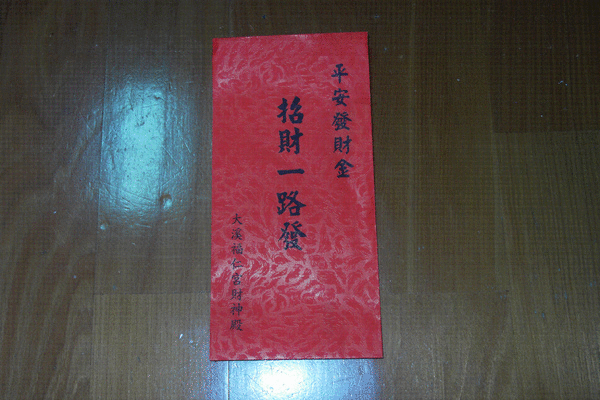 平安發財金
招財一路發
大溪福仁宮財神殿